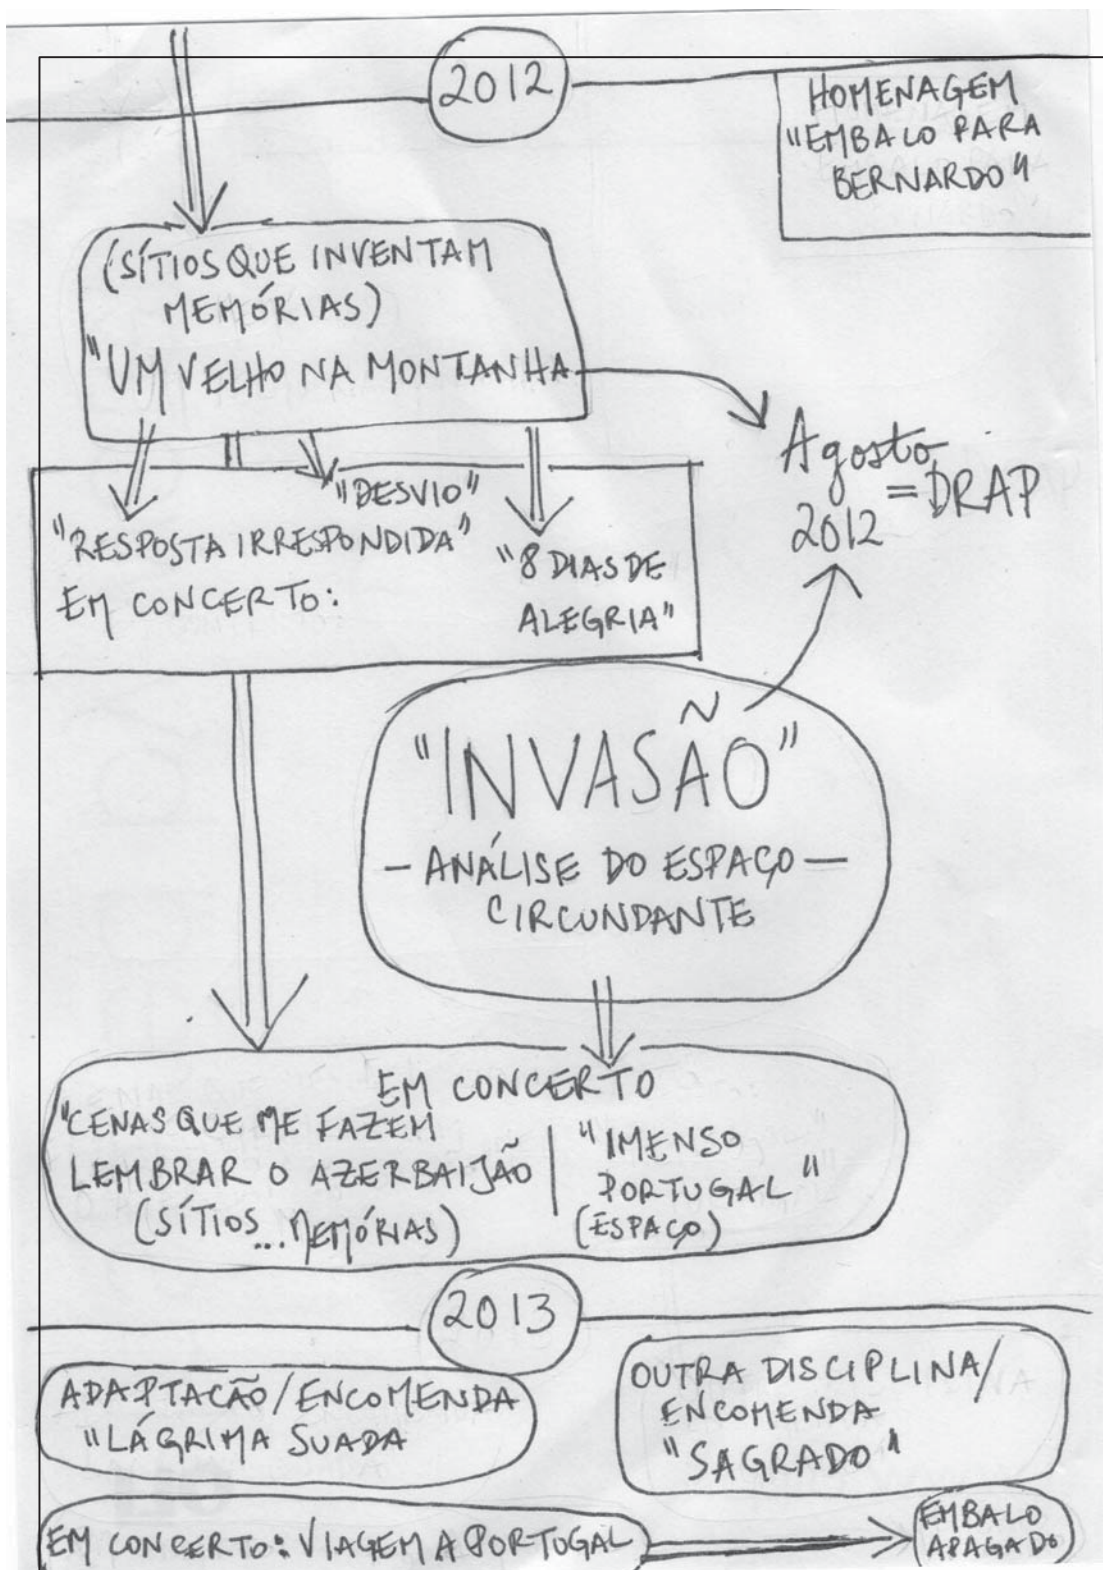 2012
HOMENAGEM
"EMBALO PARA
BERNARDO"
(SÍTIOS QUE INVENTAM
MEMÓRIAS)
"UM VELHO NA MONTANHA
Agosto
2012 = DRAP
"DESVIO"
"RESPOSTA IRRESPONDIDA"
EM CONCERTO:
"8 DIAS DE
ALEGRIA"
"INVASÃO"
- ANÁLISE DO ESPAÇO -
CIRCUNDANTE
EM CONCERTO
"CENAS QUE ME FAZEM
LEMBRAR O AZERBAIJÃO
(SÍTIOS...MEMÓRIAS)
"IMENSO
PORTUGAL"
(ESPAÇO)
2013
ADAPTACÃO/ENCOMENDA
"LÁGRIMA SUADA
OUTRA DISCIPLINA/
ENCOMENDA
"SAGRADO"
EM CONCERTO: VIAGEM A PORTUGAL
EMBALO
APAGADO